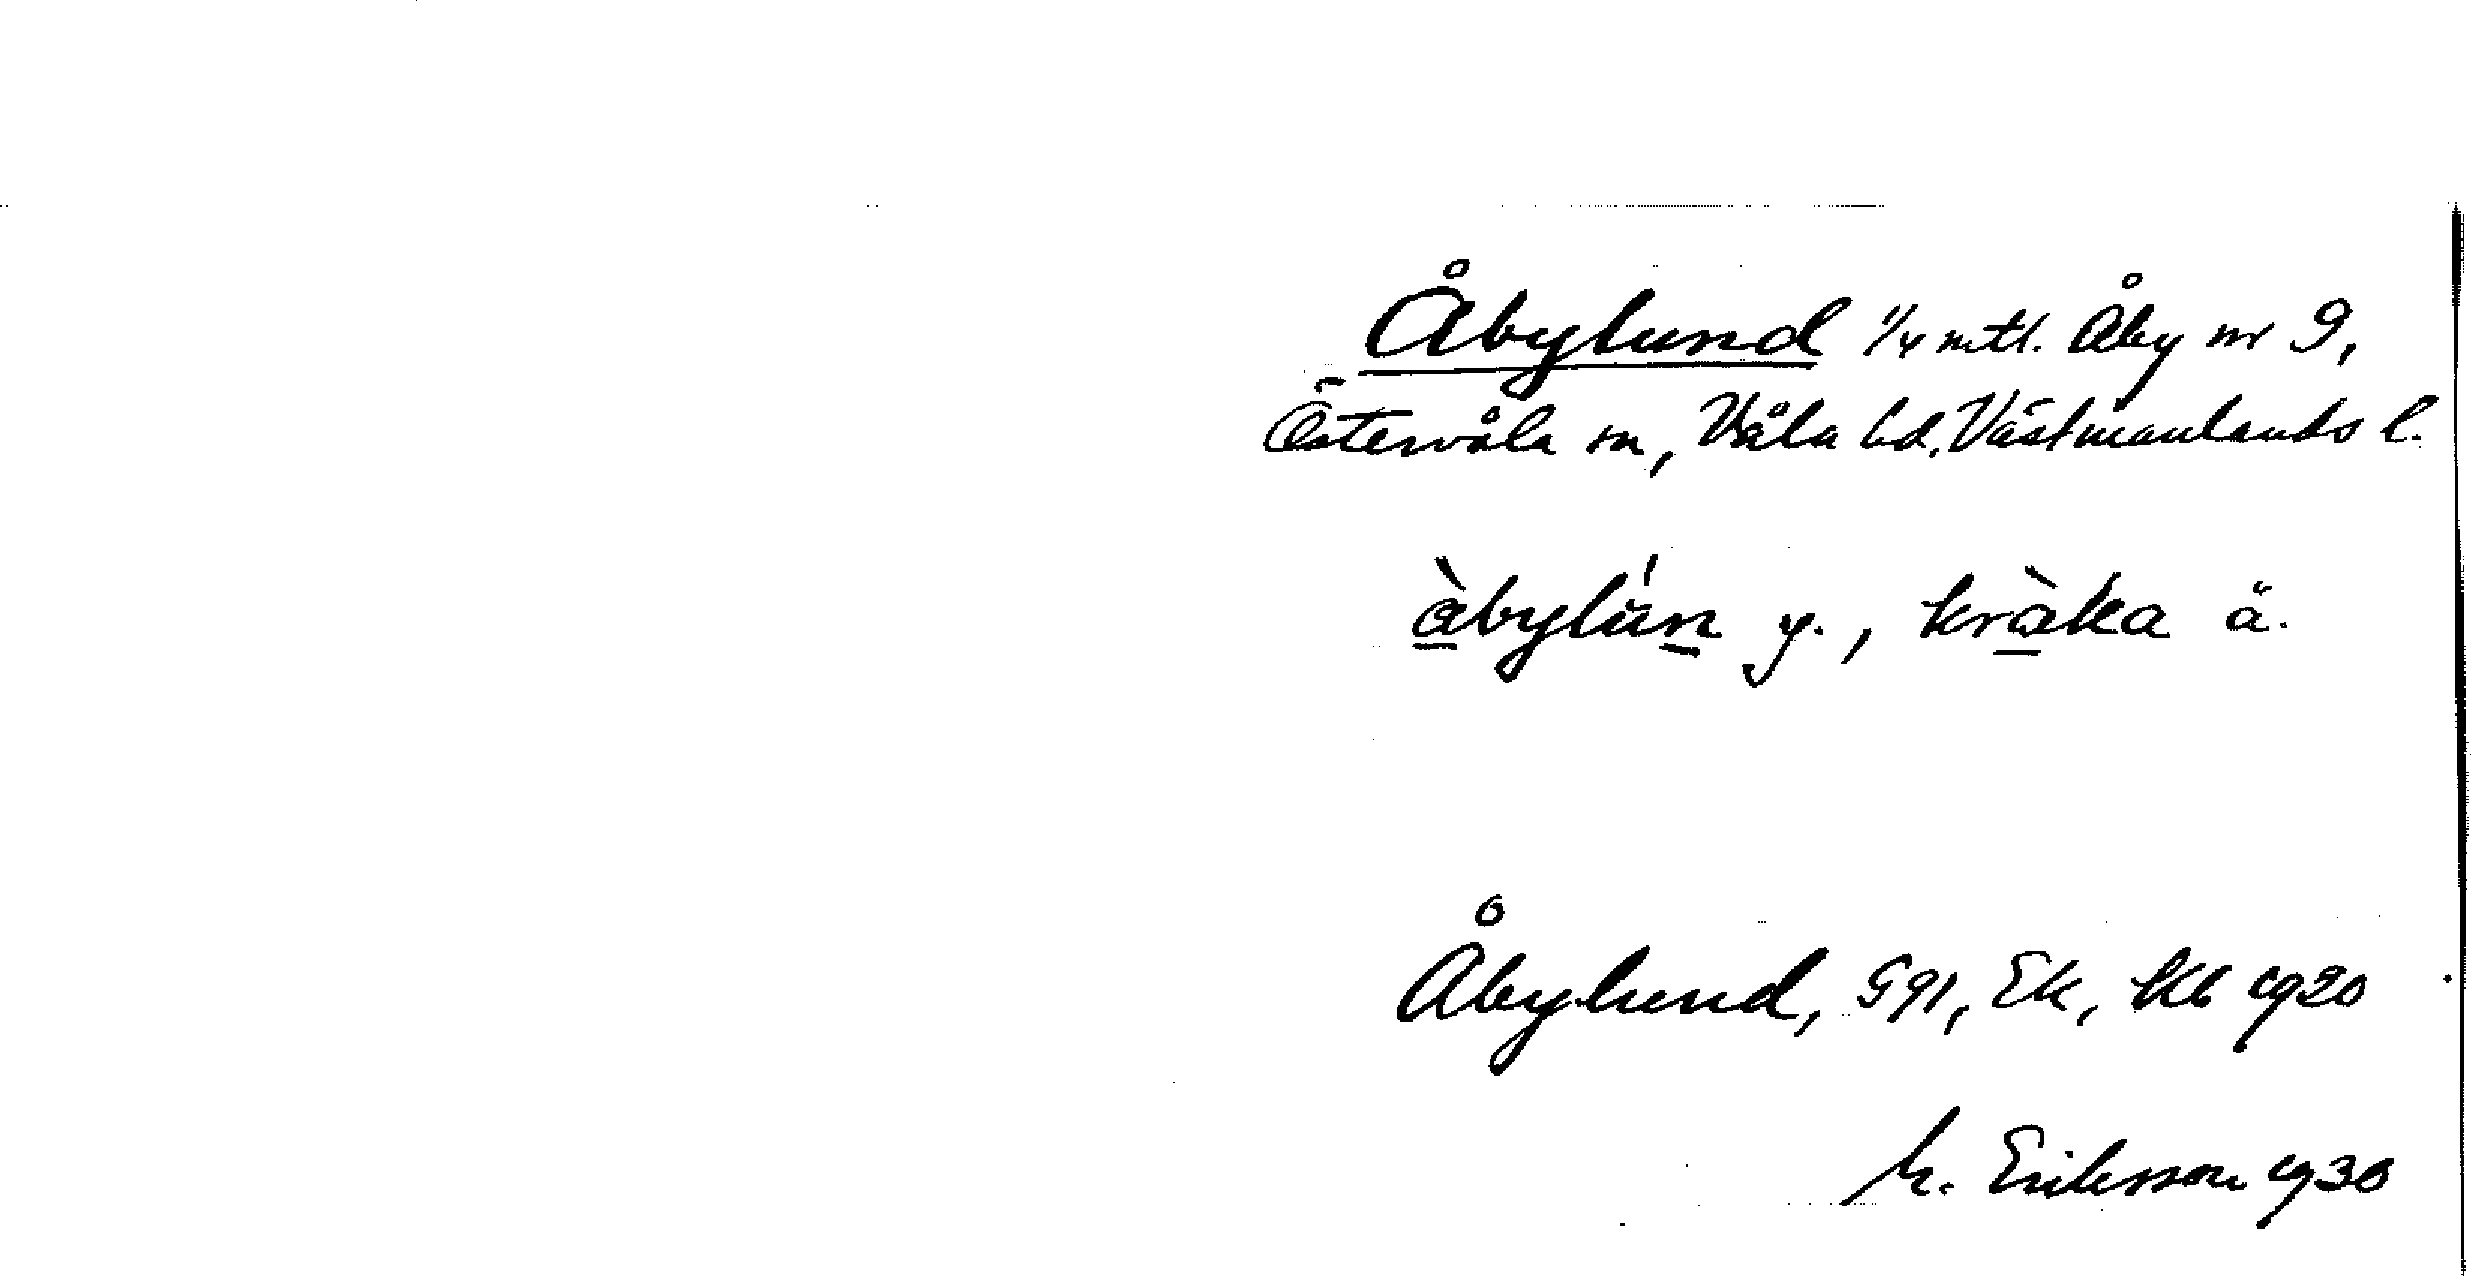 Åbylund 1/4 mtl. Åby nr 9,
Östervåla sn, Våla hd, Västmanlands l.
àbylún y., kràka ä.
Åbylund, G91, Ek, Kb 1920
M. Eriksson 1930